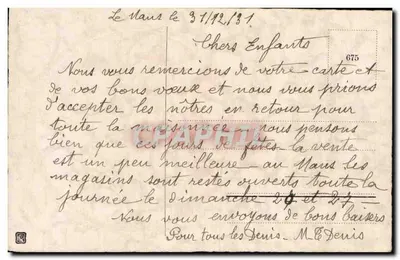 Le Mans le 31/12/31
Chers Enfants
675
Nous vous remercions de votre carte et
de vos bons vœux et nous vous prions
d'accepter les nôtres en retour pour
toute la maisonnée nous pensons
bien que ces jours de fêtes la vente
est un peu meilleure au Mans les
magasins sont restés ouverts toute la
journée le dimanche 20 et 27
Nous vous envoyons de bons baisers
Pour tous les Denis. M Denis